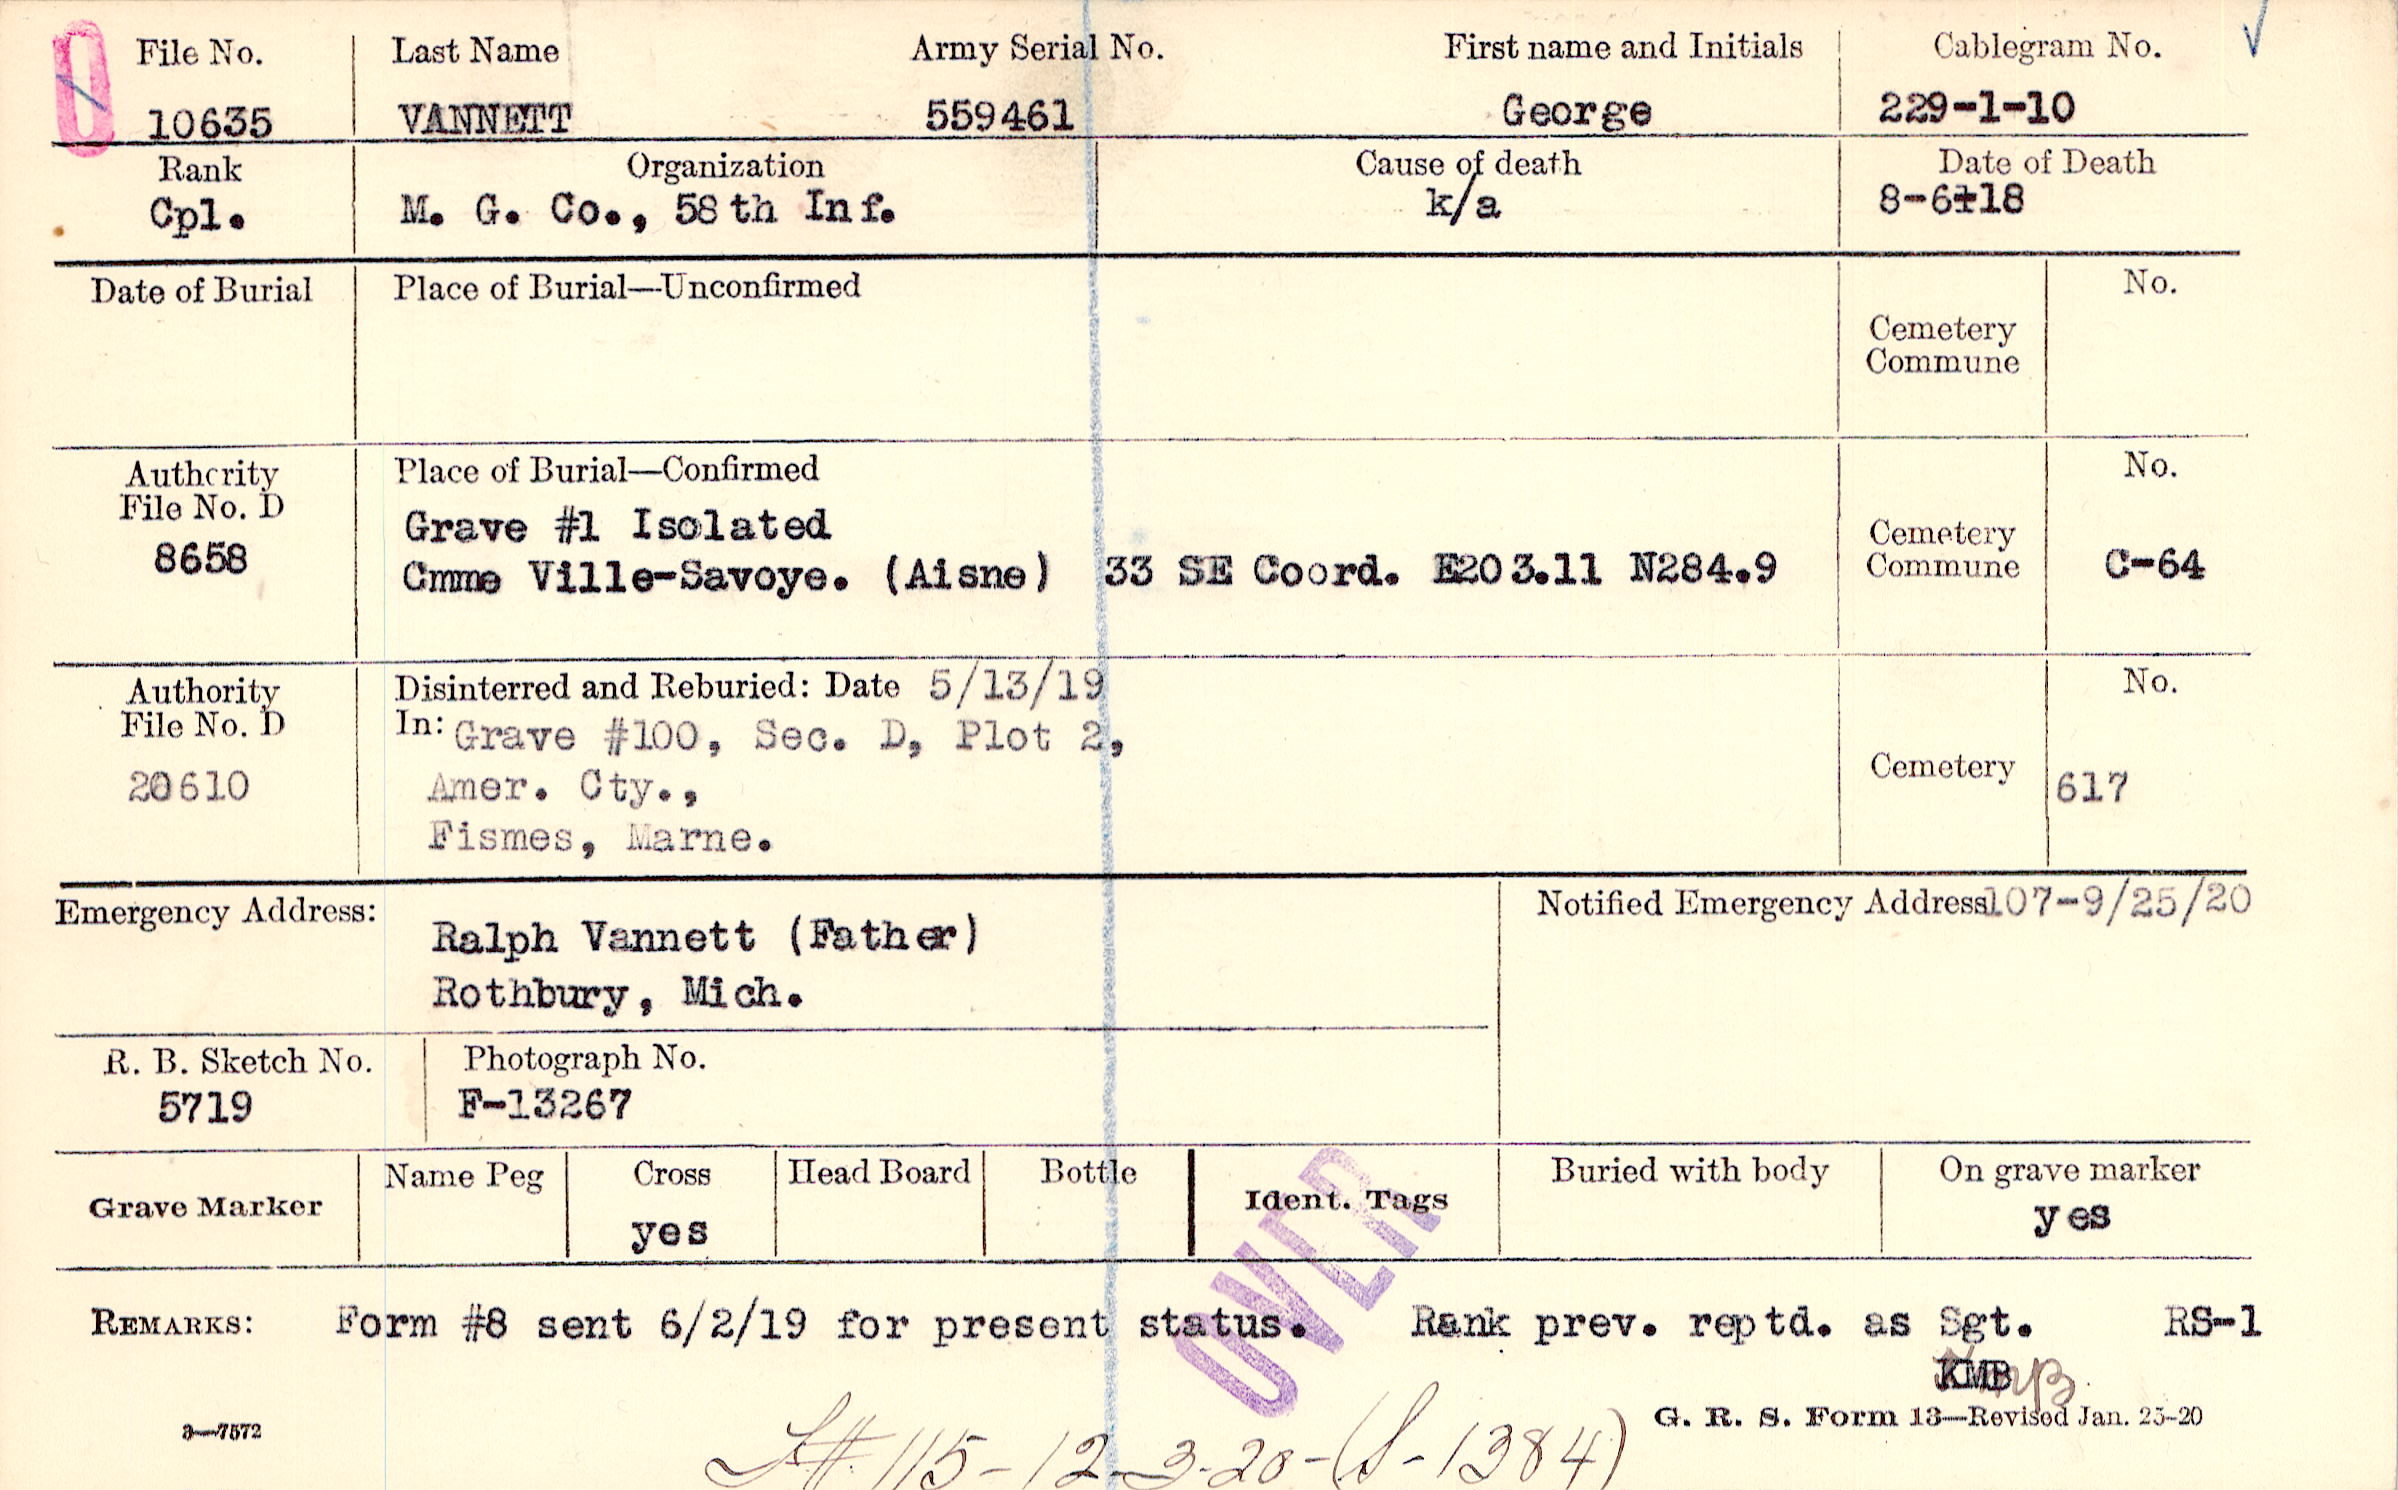 File No. Last Name Army Serial No. First name and Initials Cablegram No.
10635 VANNETT 559461 George 229-1-10
Rank Organization Cause of death Date of Death
Cpl. M. G. Co., 58th Inf. k/a 8-6-18
Date of Burial Place of Burial—Unconfirmed No.
Cemetery
Commune
Authority Place of Burial—Confirmed No.
File No. D
8658
Grave #1 Isolated
Cmme Ville-Savoye. (Aisne) 33 SE Coord. E203.11 N284.9
Cemetery
Commune C-64
Authority Disinterred and Reburied: Date 5/13/19 No.
File No. D In: Grave #100, Sec. D, Plot 2,
20610 Amer. Cty., Cemetery 617
Fismes, Marne.
Emergency Address: Notified Emergency Address 107-9/25/20
Ralph Vannett (Father)
Rothbury, Mich.
R. B. Sketch No. Photograph No.
5719 F-13267
Grave Marker Name Peg Cross Head Board Bottle Ident. Tags Buried with body On grave marker
yes yes
OVER
REMARKS: Form #8 sent 6/2/19 for present status. Rank prev. reptd. as Sgt. RS-1
KMB
3—7572 G. R. S. Form 13—Revised Jan. 23-20
115-12-3-20-(S-1384)